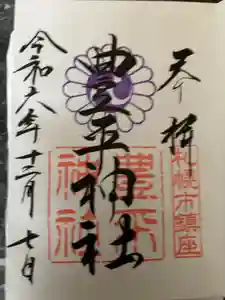 奉拝
札幌市鎮座
豊平神社
豊平神社
令和六年十二月七日